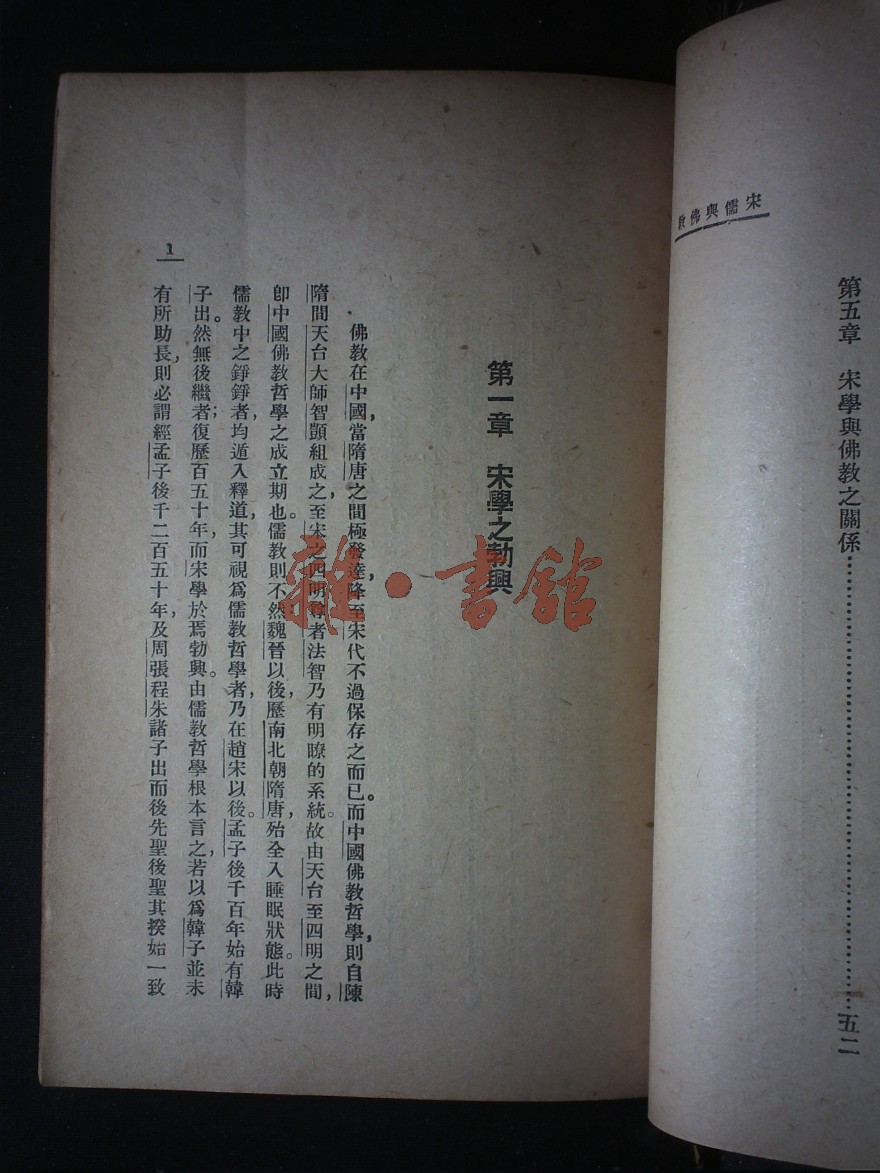 宋儒與佛教
第五章　宋學與佛教之關係……………………………………五二
第一章　宋學之勃興
佛教在中國，當隋唐之間極發達，降至宋代不過保存之而已。而中國佛教哲學，則自陳
隋間天台大師智顗組成之，至宋之四明尊者法智乃有明瞭的系統。故由天台至四明之間，
卽中國佛教哲學之成立期也。儒教則不然，魏晉以後，歷南北朝隋唐，殆全入睡眠狀態。此時
儒教中之錚錚者，均遁入釋道，其可視爲儒教哲學者，乃在趙宋以後。孟子後千百年始有韓
子出。然無後繼者；復歷百五十年，而宋學於焉勃興。由儒教哲學根本言之，若以爲韓子並未
有所助長，則必謂經孟子後千二百五十年，及周張程朱諸子出而後先聖後聖其揆始一致
1
雜·書館